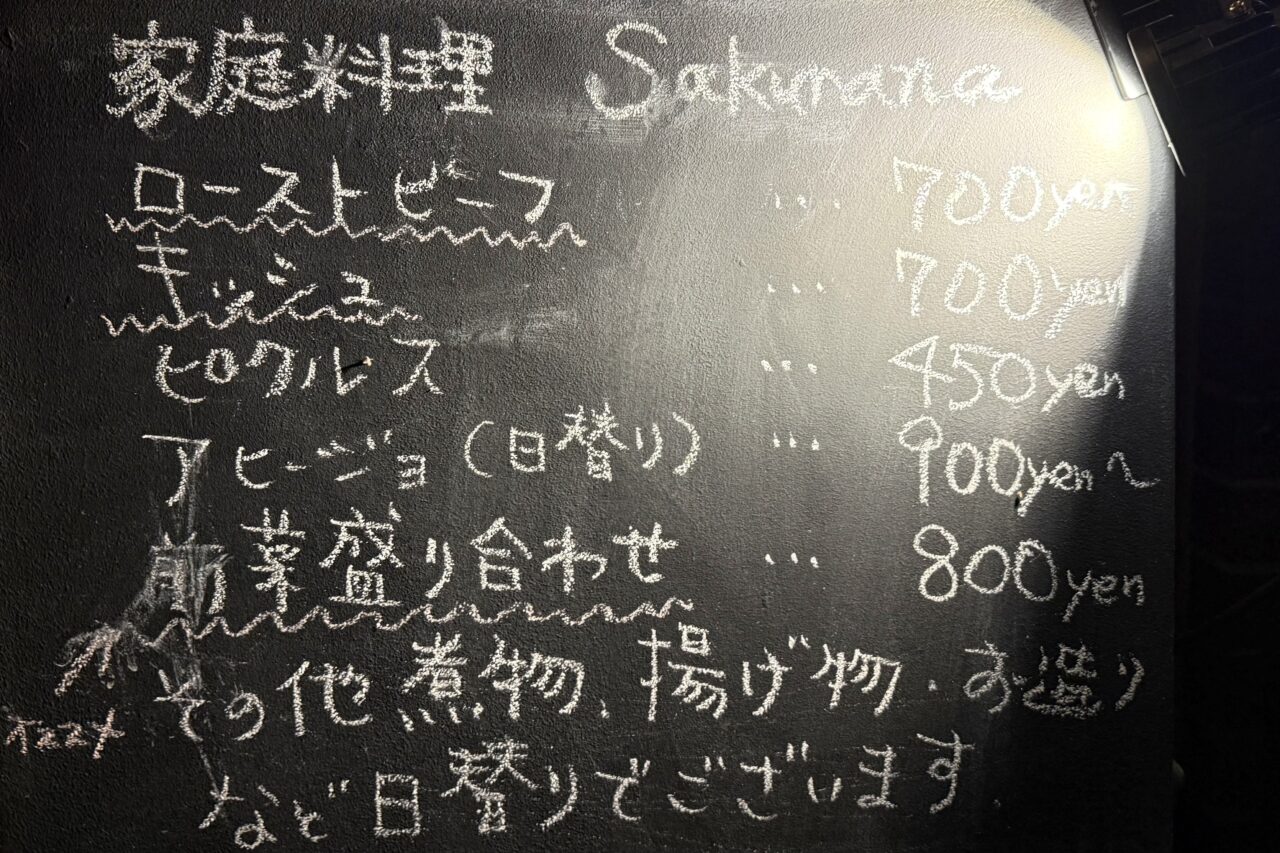 家庭料理 Sakurana
ローストビーフ … 700yen
キッシュ … 700yen
ピクルス … 450yen
アヒージョ（日替り） … 900yen〜
前菜盛り合わせ … 800yen
その他煮物、揚げ物、お造り
オススメ
など日替りでございます。